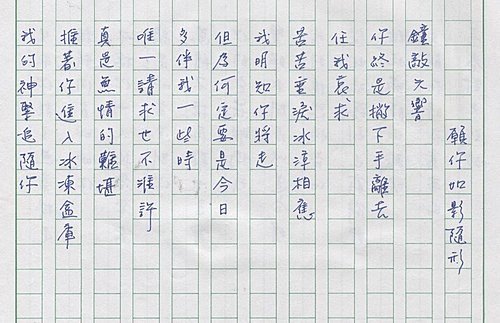 願你如影隨形
鐘敲六響
你終是撇下手離去
任我哀求
苦苦垂淚冰淳相應
我明知你將走
但為何定要是今日
多伴我一些時
唯一請求也不准許
真是無情的難堪
擁著你進入冰凍盒庫
我的神聖追隨你